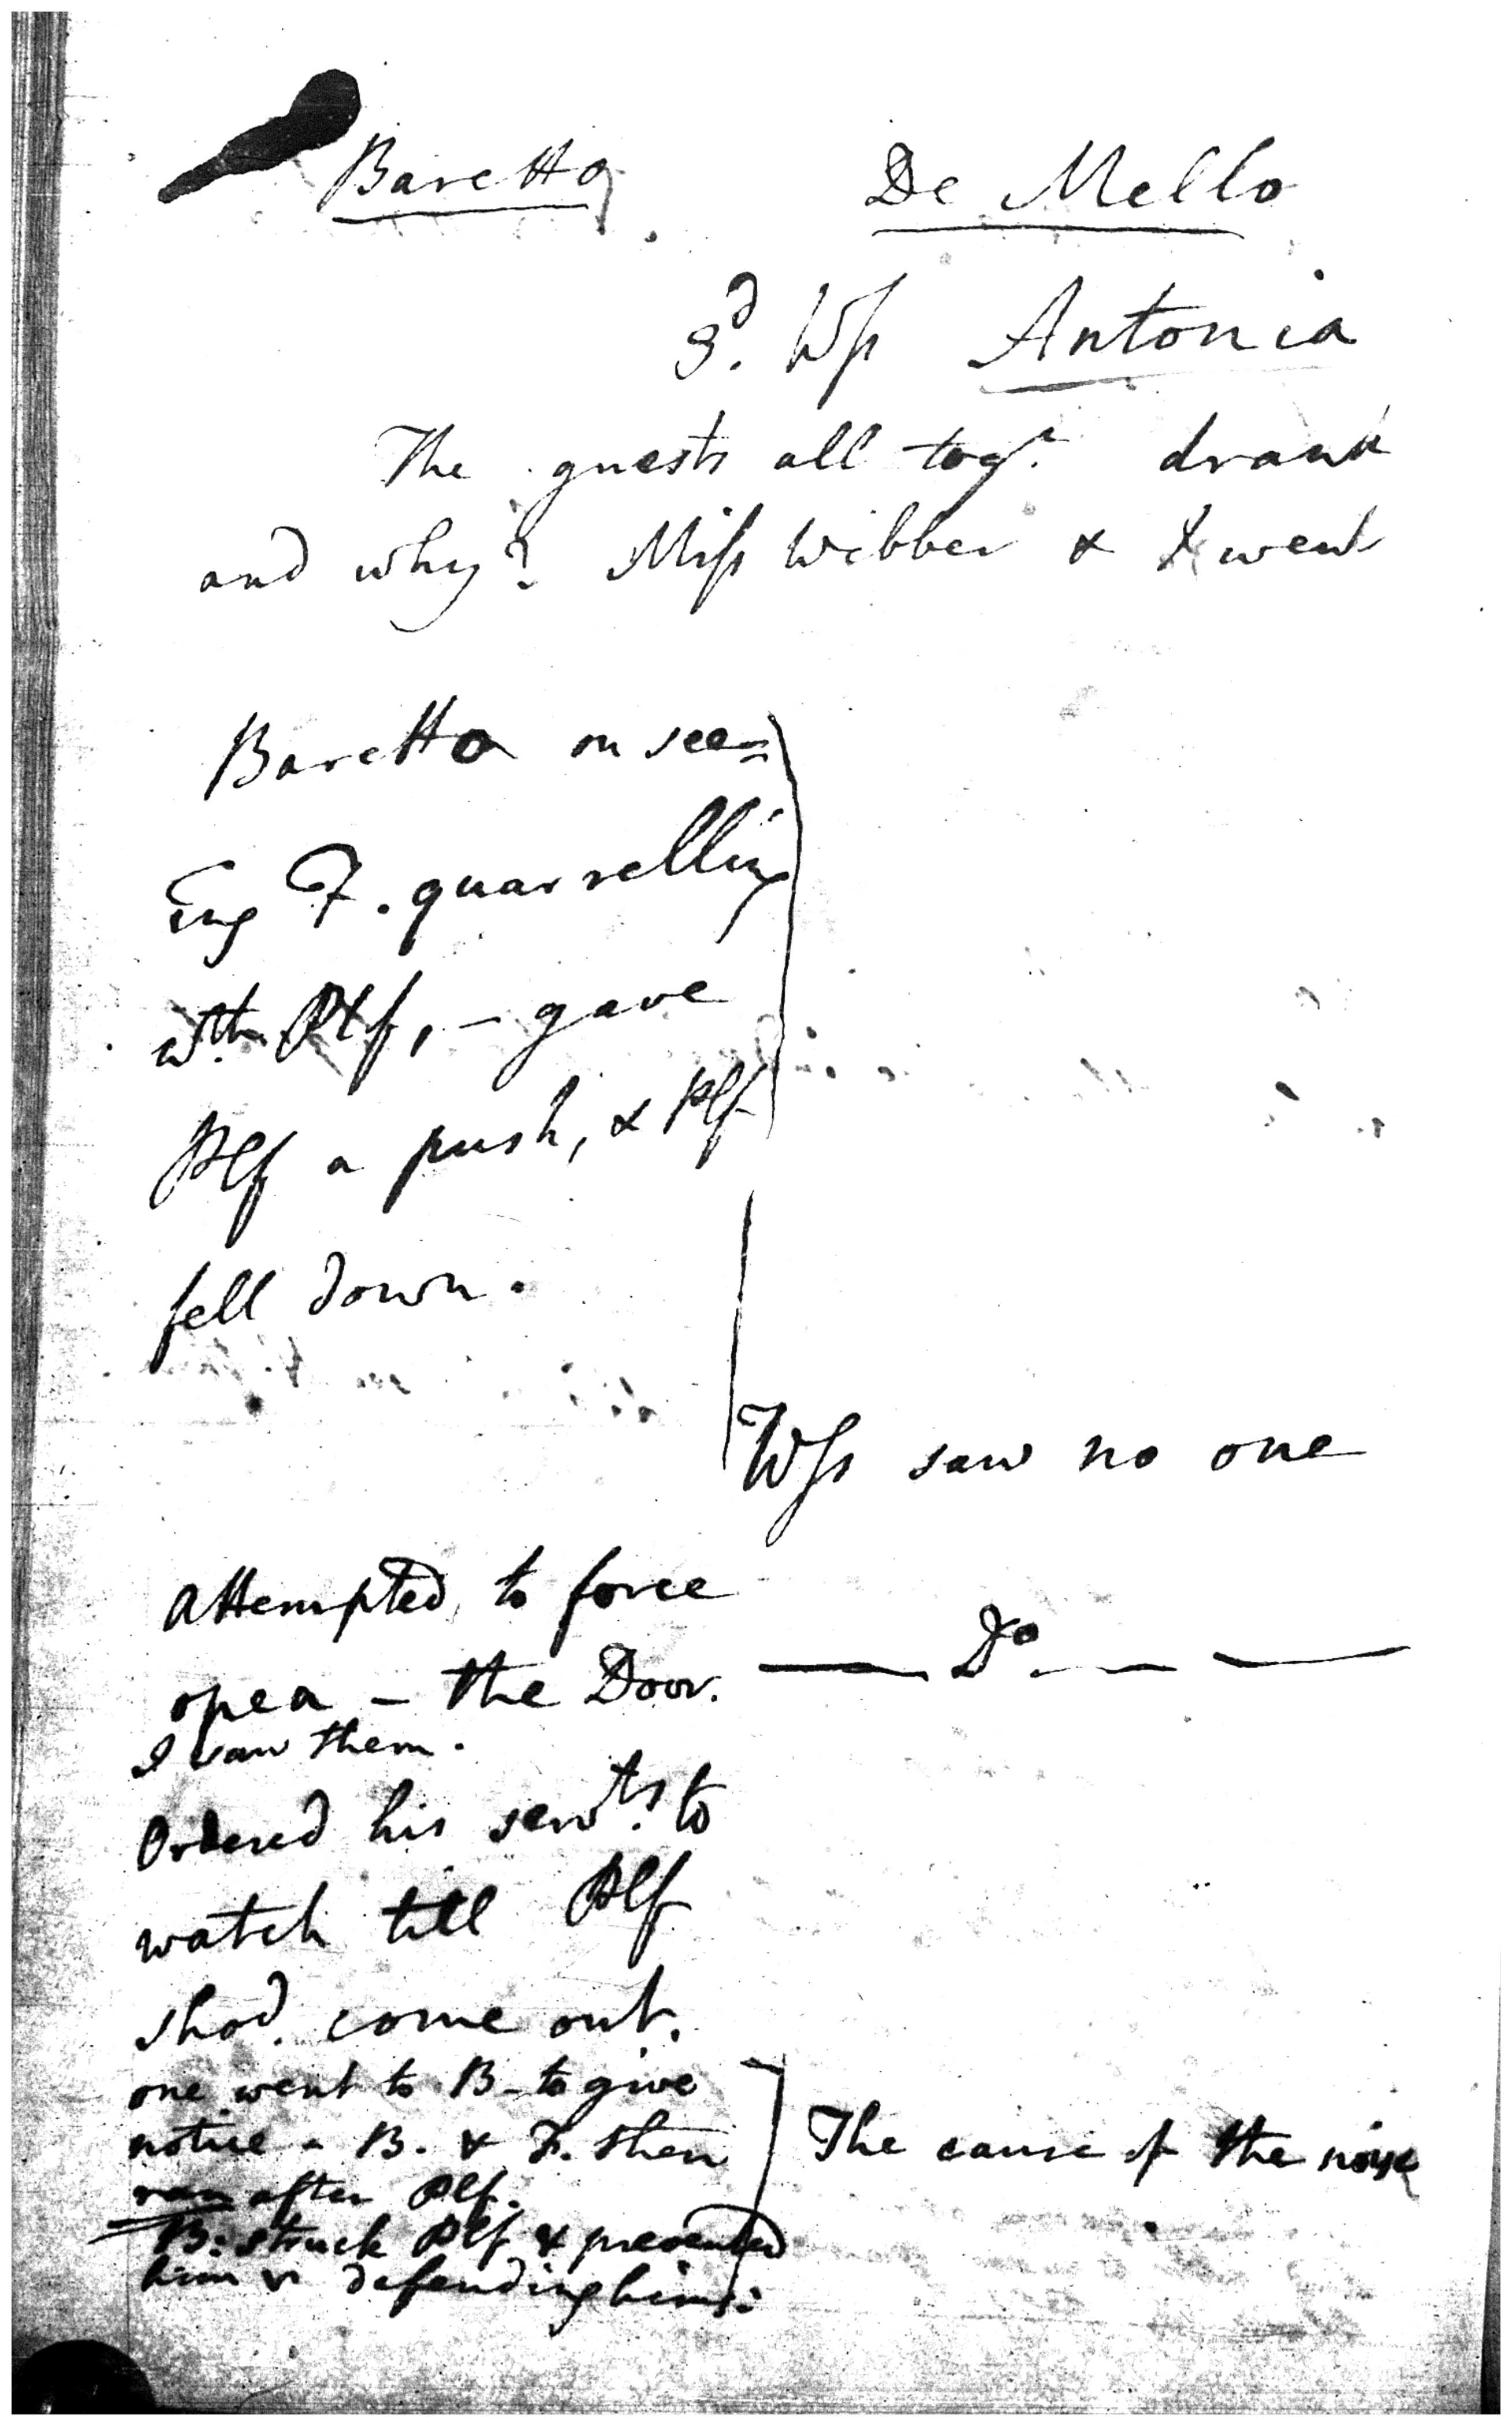 Baretto De Mello
3d. Wss Antonia
The guests all togr. drank
and why? Miss Webber & I went
Baretto on see=
ing F. quarrelling
wth Plf, - gave
Plf a push, & Plf
fell down.
Wss saw no one
attempted to force
open - the Door. Do
I saw them.
Ordered his servts. to
watch till Plf
shod. come out.
one went to B - to give
notice - B. & F. then The cause of the noise
ran after Plf.
B: struck Plf & prevented
him defending hims: